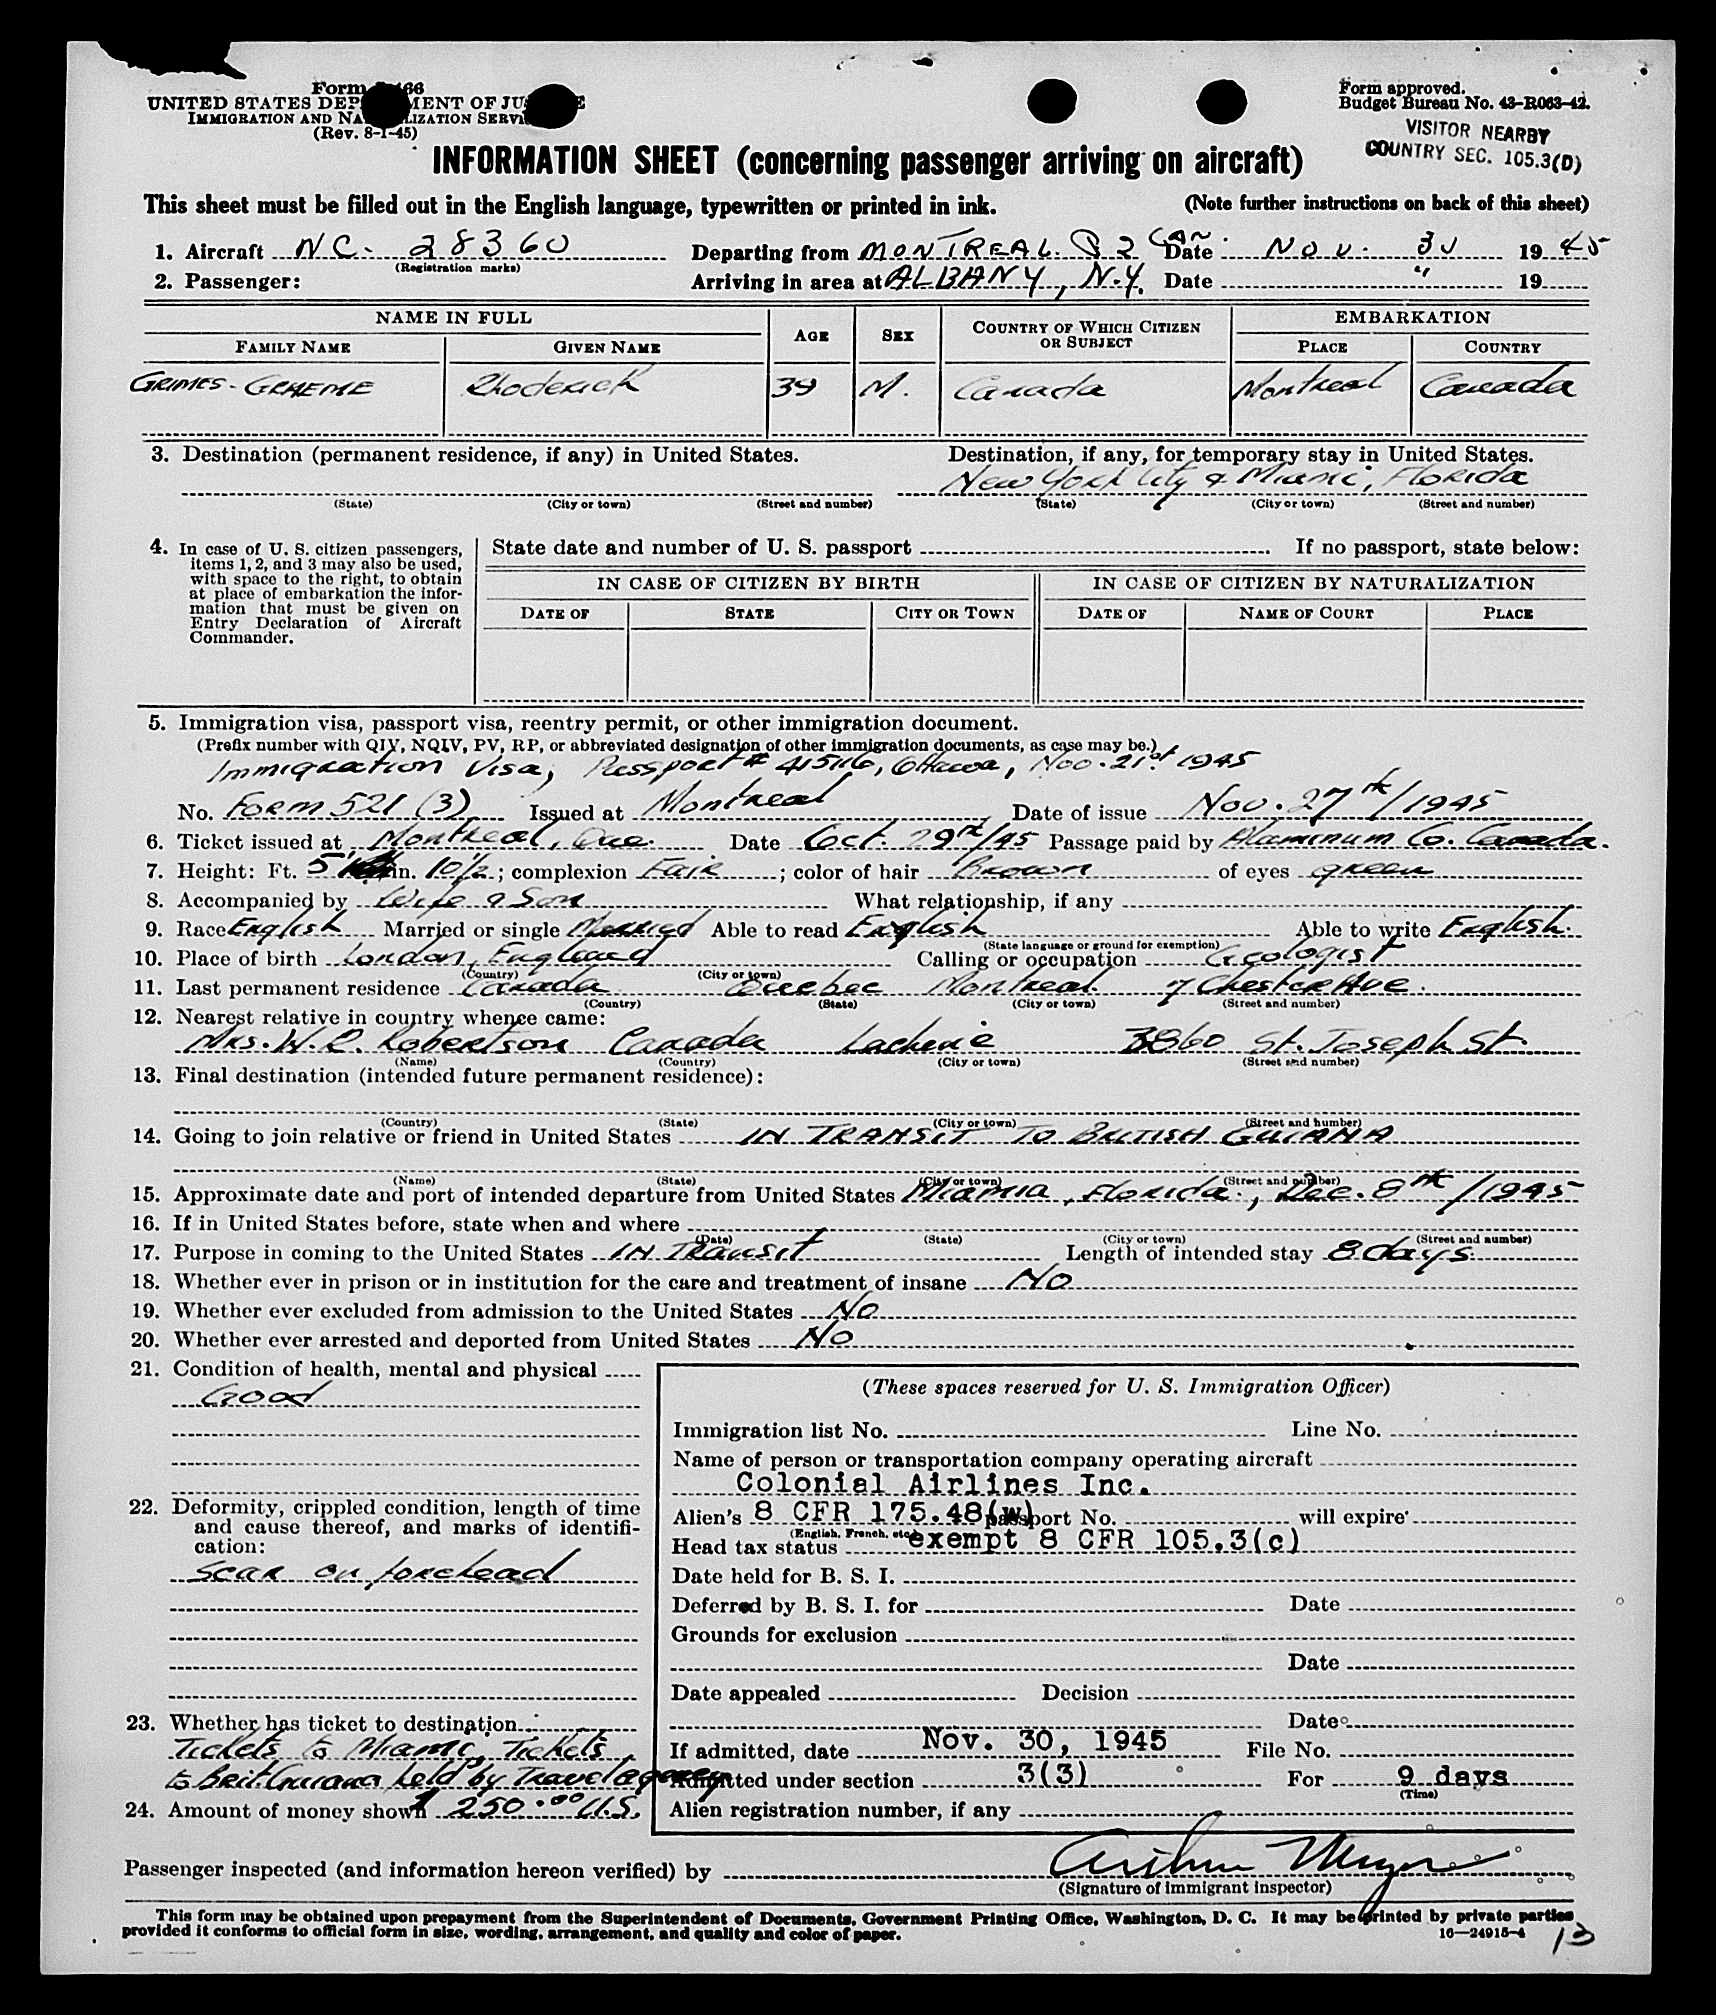 Form 466
UNITED STATES DEPARTMENT OF JUSTICE
IMMIGRATION AND NATURALIZATION SERVICE
(Rev. 8-1-45)
Form approved.
Budget Bureau No. 43-R063-42.
VISITOR NEARBY
COUNTRY SEC. 105.3(D)
INFORMATION SHEET (concerning passenger arriving on aircraft)
This sheet must be filled out in the English language, typewritten or printed in ink. (Note further instructions on back of this sheet)
1. Aircraft NC- 28360 Departing from MONTREAL. P 2 CAN. Date Nov. 30 1945
(Registration marks)
2. Passenger: Arriving in area at ALBANY, N.Y. Date " 19
NAME IN FULL AGE SEX COUNTRY OF WHICH CITIZEN OR SUBJECT EMBARKATION
FAMILY NAME GIVEN NAME PLACE COUNTRY
GRIMES-GRAEME Rhoderick 34 M. Canada Montreal Canada
3. Destination (permanent residence, if any) in United States. Destination, if any, for temporary stay in United States.
New York City & Miami, Florida
(State) (City or town) (Street and number) (State) (City or town) (Street and number)
4. In case of U. S. citizen passengers, items 1, 2, and 3 may also be used, with space to the right, to obtain at place of embarkation the information that must be given on Entry Declaration of Aircraft Commander.
State date and number of U. S. passport If no passport, state below:
IN CASE OF CITIZEN BY BIRTH IN CASE OF CITIZEN BY NATURALIZATION
DATE OF STATE CITY OR TOWN DATE OF NAME OF COURT PLACE
5. Immigration visa, passport visa, reentry permit, or other immigration document.
(Prefix number with QIV, NQIV, PV, RP, or abbreviated designation of other immigration documents, as case may be.)
Immigration Visa, Passport # 415116, Ottawa, Nov. 21st 1945
No. Form 521 (3) Issued at Montreal Date of issue Nov. 27th/1945
6. Ticket issued at Montreal, Que. Date Oct. 29th/45 Passage paid by Aluminum Co. Canada.
7. Height: Ft. 5 in. 10½; complexion Fair; color of hair Brown of eyes green
8. Accompanied by Wife & Son What relationship, if any
9. Race English Married or single Married Able to read English Able to write English.
(State language or ground for exemption)
10. Place of birth London, England Calling or occupation Geologist
(Country) (City or town)
11. Last permanent residence Canada Quebec Montreal. 7 Chester Ave.
(Country) (State) (City or town) (Street and number)
12. Nearest relative in country whence came:
Mrs. W. R. Robertson Canada Lachine 3860 St. Joseph St.
(Name) (Country) (City or town) (Street and number)
13. Final destination (intended future permanent residence):
(Country) (State) (City or town) (Street and number)
14. Going to join relative or friend in United States IN TRANSIT TO BRITISH GUIANA
(Name) (State) (City or town) (Street and number)
15. Approximate date and port of intended departure from United States Miamia, Florida., Dec. 8th/1945
16. If in United States before, state when and where
(Date) (State) (City or town) (Street and number)
17. Purpose in coming to the United States IN TRANSIT Length of intended stay 8 days.
18. Whether ever in prison or in institution for the care and treatment of insane No
19. Whether ever excluded from admission to the United States No
20. Whether ever arrested and deported from United States No
21. Condition of health, mental and physical
Good
22. Deformity, crippled condition, length of time and cause thereof, and marks of identification:
Scar on forehead
23. Whether has ticket to destination
Tickets to Miami, Tickets
to Brit. Guiana held by Travel agency
24. Amount of money shown $ 250.00 U.S.
(These spaces reserved for U. S. Immigration Officer)
Immigration list No. Line No.
Name of person or transportation company operating aircraft
Colonial Airlines Inc.
Alien's 8 CFR 175.48(w) passport No. will expire
(English, French, etc.)
Head tax status exempt 8 CFR 105.3(c)
Date held for B. S. I.
Deferred by B. S. I. for Date
Grounds for exclusion
Date
Date appealed Decision
Date
If admitted, date Nov. 30, 1945 File No.
Admitted under section 3(3) For 9 days
(Time)
Alien registration number, if any
Passenger inspected (and information hereon verified) by
(Signature of immigrant inspector)
This form may be obtained upon prepayment from the Superintendent of Documents, Government Printing Office, Washington, D. C. It may be printed by private parties
provided it conforms to official form in size, wording, arrangement, and quality and color of paper.
16—24915-4
13